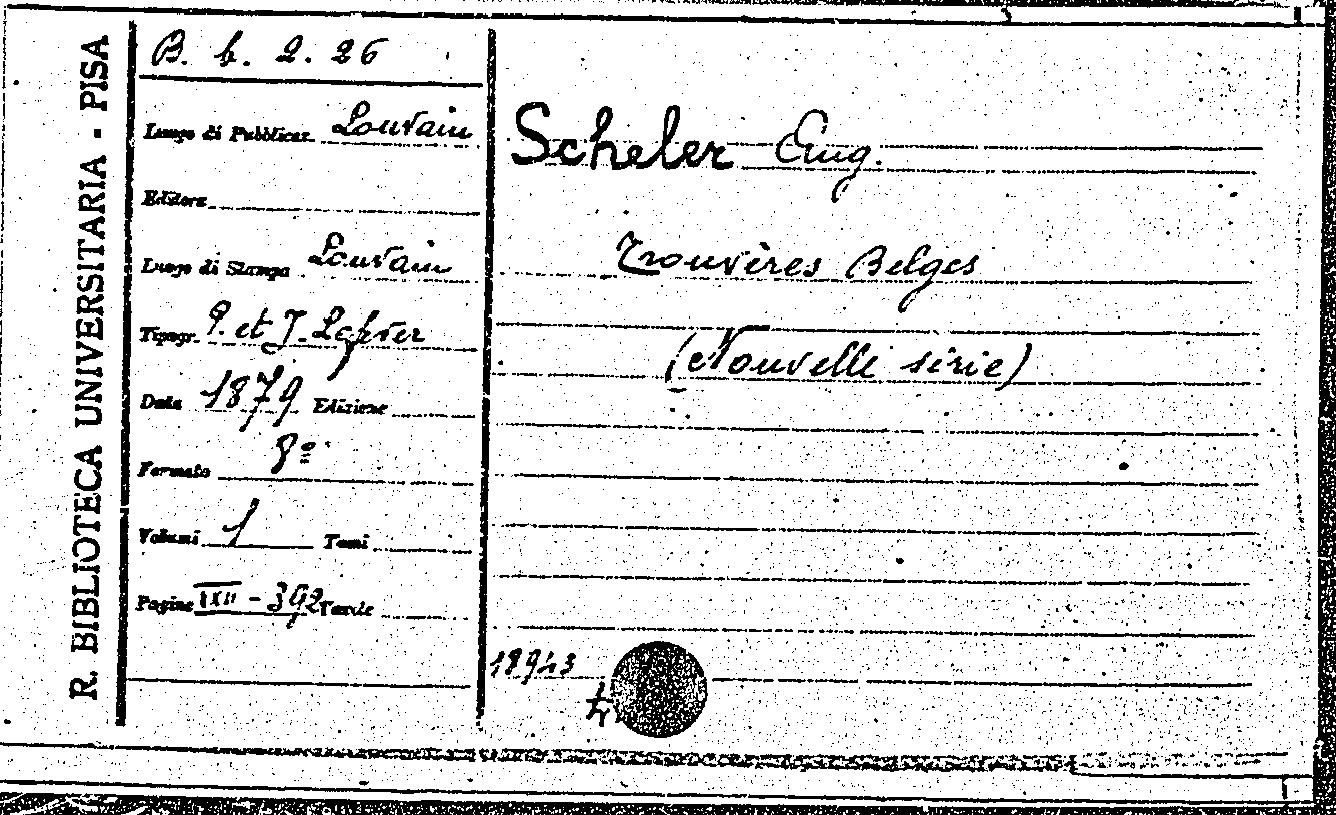 R. BIBLIOTECA UNIVERSITARIA - PISA
B. b. 2. 26
Luogo di Pubblicaz. Louvain
Editore
Luogo di Stampa Louvain
Tipogr. P. et J. Lefever
Data 1879 Edizione
Formato 8º
Volumi 1 Tomi
Pagine - 392 Tavole
Scheler Aug.
Trouvères Belges
(Nouvelle série)
18943